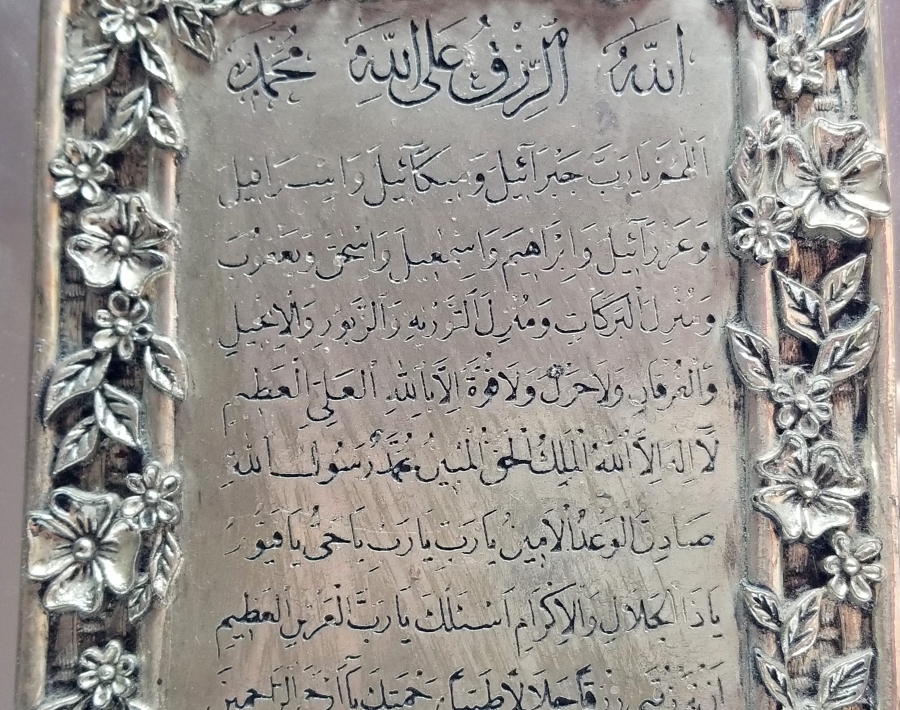 الله الرزق على الله محمد
اللهم يا رب جبرائيل وميكائيل واسرافيل
وعزرائيل وابراهيم واسمعيل واسحق ويعقوب
ومنزل البركات ومنزل التورية والزبور والانجيل
والفرقان ولا حول ولا قوة الا بالله العلي العظيم
لا اله الا الله الملك الحق المبين محمد رسول الله
صادق الوعد الامين يا رب يا رب يا حي يا قيوم
يا ذا الجلال والاكرام اسئلك يا رب العرش العظيم
ان ترزقني رزقا حلالا طيبا برحمتك يا ارحم الراحمين